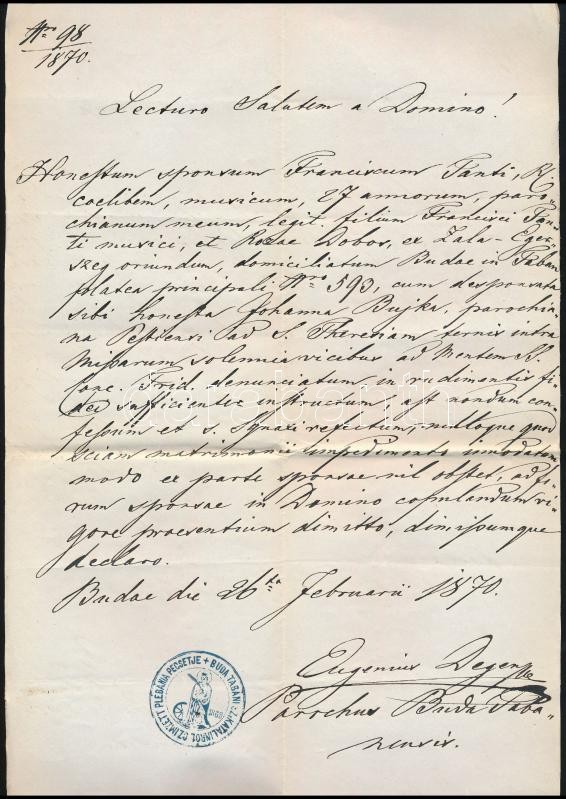 Nro 98
1870.
Lecturo Salutem a Domino!
Honestum sponsum Franciscum Tanti, R.
coelibem, musicum, 27 annorum, paro-
chianum meum, legit. filium Francisci Tan-
ti musici, et Rozae Dobos, ex Zala-Eger-
szeg oriundum, domiciliatum Budae in Taban
platea principali Nro 593, cum desponsata
sibi honesta Johanna Bujka, parochia-
na Pestiensi ad S. Theresiam ternis intra
Missarum solemnia vicibus ad mentem SS.
Conc. Trid. denunciatum, in rudimentis fi-
dei sufficienter instructum, ast nondum con-
fessum et s. Synaxi refectum, nulloque quod
sciam matrimonii impedimento innodatum
modo ex parte sponsae nil obstet, ad
rum sponsae in Domino copulandum vi-
gore praesentium dimitto, dimissumque
declaro.
Budae die 26ta Februarii 1870.
Eugenius Degen
Parochus Buda Taba-
nensis.
BUDA TABANI SZ. KATALINRÓL CZIMZETT PLEBANIA PECSETJE +
darabanth